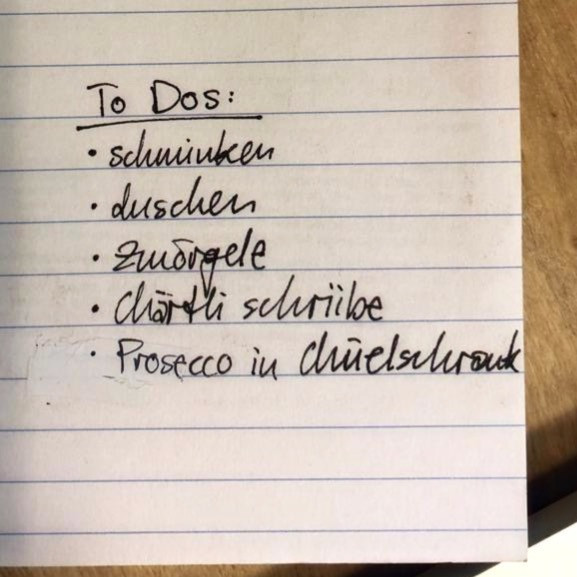 To Dos:
• schminken
• duschen
• zmörgele
• Chärtli schriibe
• Prosecco in Chüelschrank